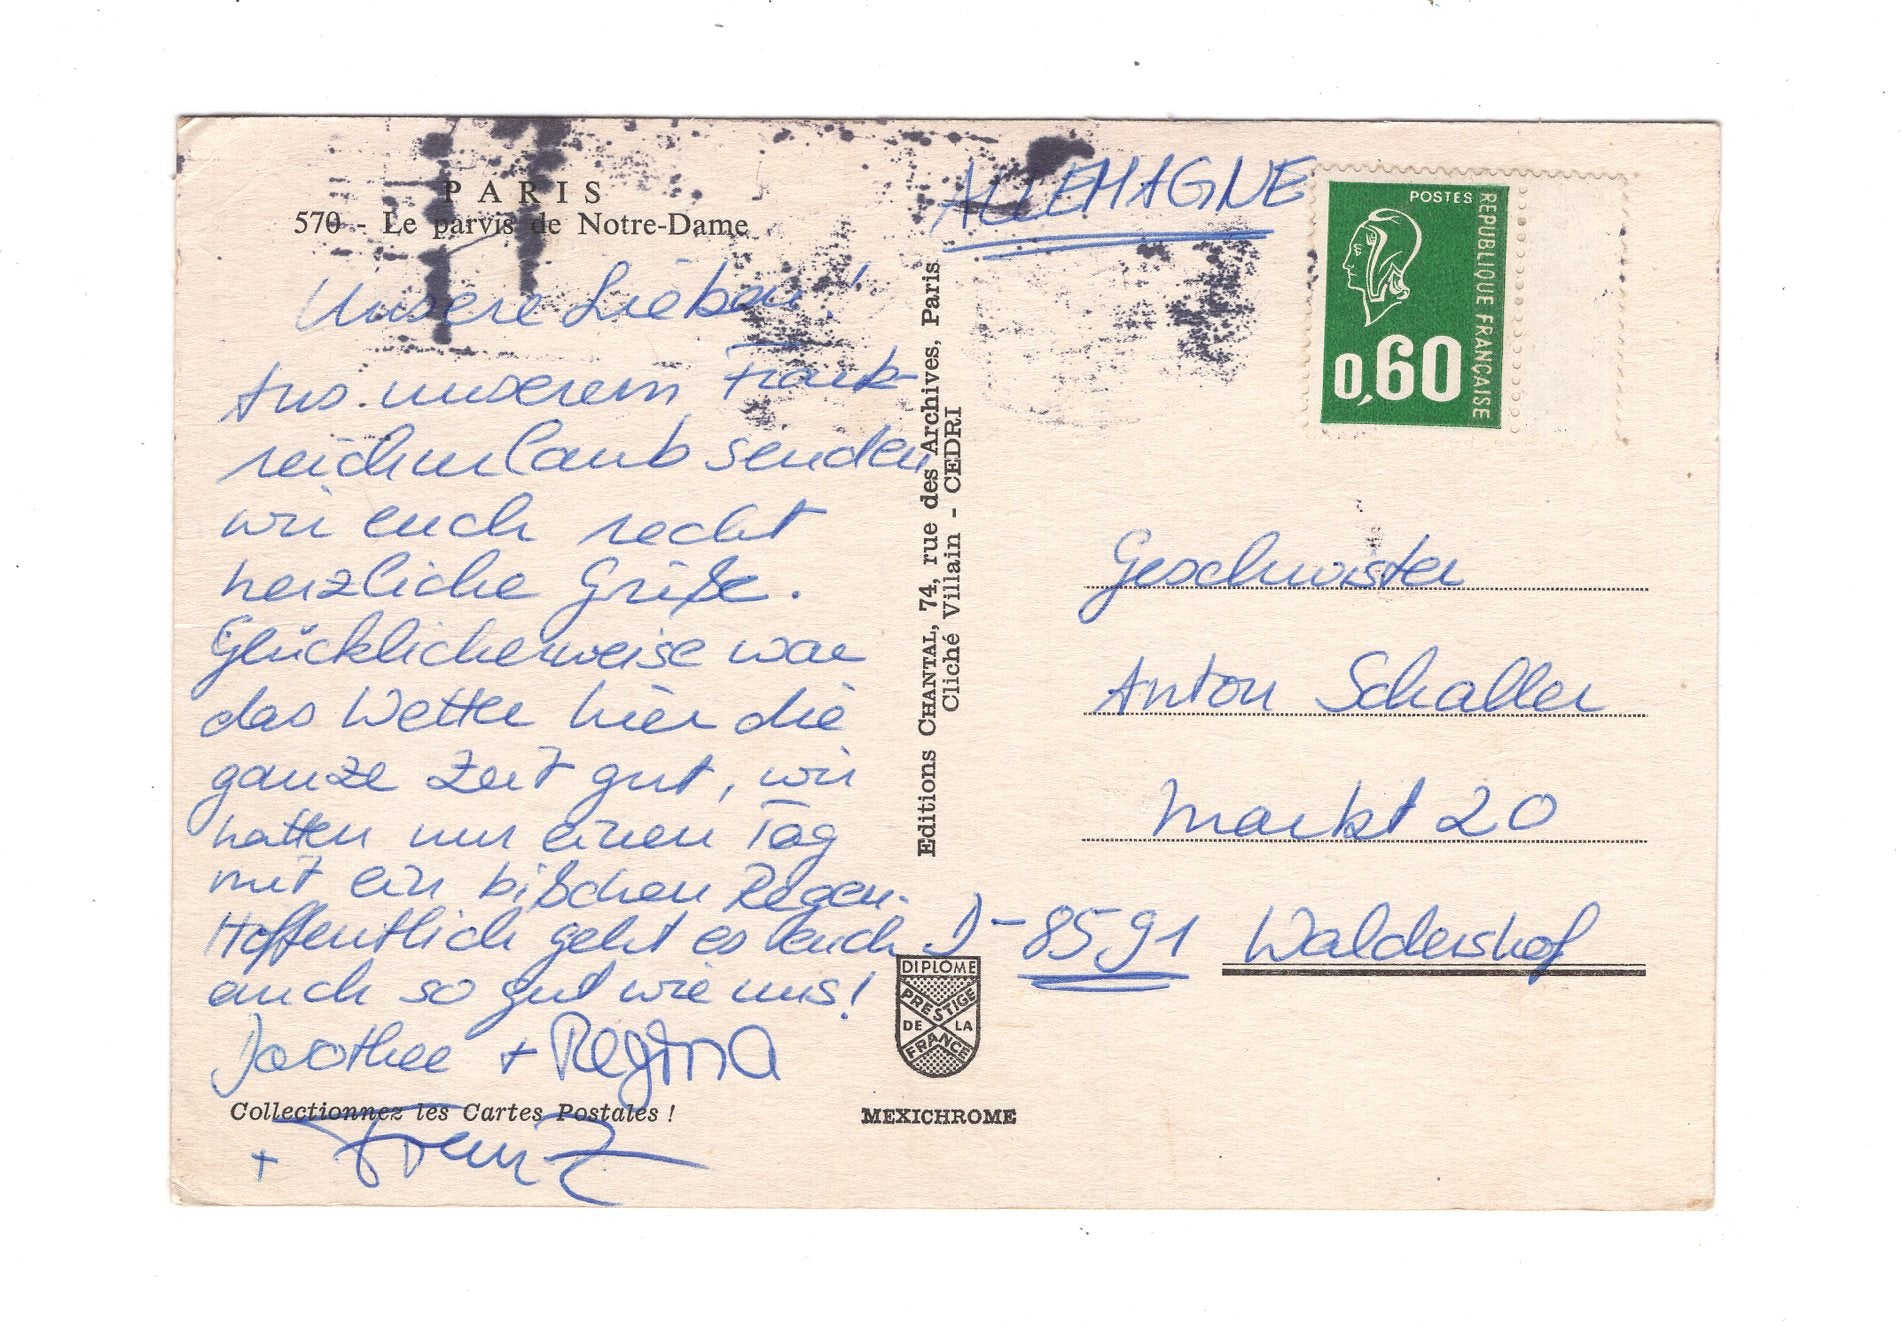 PARIS
570 - Le parvis de Notre-Dame
Unsere Lieben!
Aus unserem Frank-
reichurlaub senden
wir euch recht
herzliche Grüße.
Glücklicherweise war
das Wetter hier die
ganze Zeit gut, wir
hatten nur einen Tag
mit ein bißchen Regen.
Hoffentlich geht es euch
auch so gut wie uns!
Dorothee + Regina
Collectionnez les Cartes Postales !
+ Franz
Editions CHANTAL, 74, rue des Archives, Paris
Cliché Villain - CEDRI
DIPLOME
PRESTIGE
DE LA
FRANCE
MEXICHROME
ALLEMAGNE
POSTES
REPUBLIQUE FRANÇAISE
0,60
Geschwister
Anton Schaller
Markt 20
D-8591 Waldershof